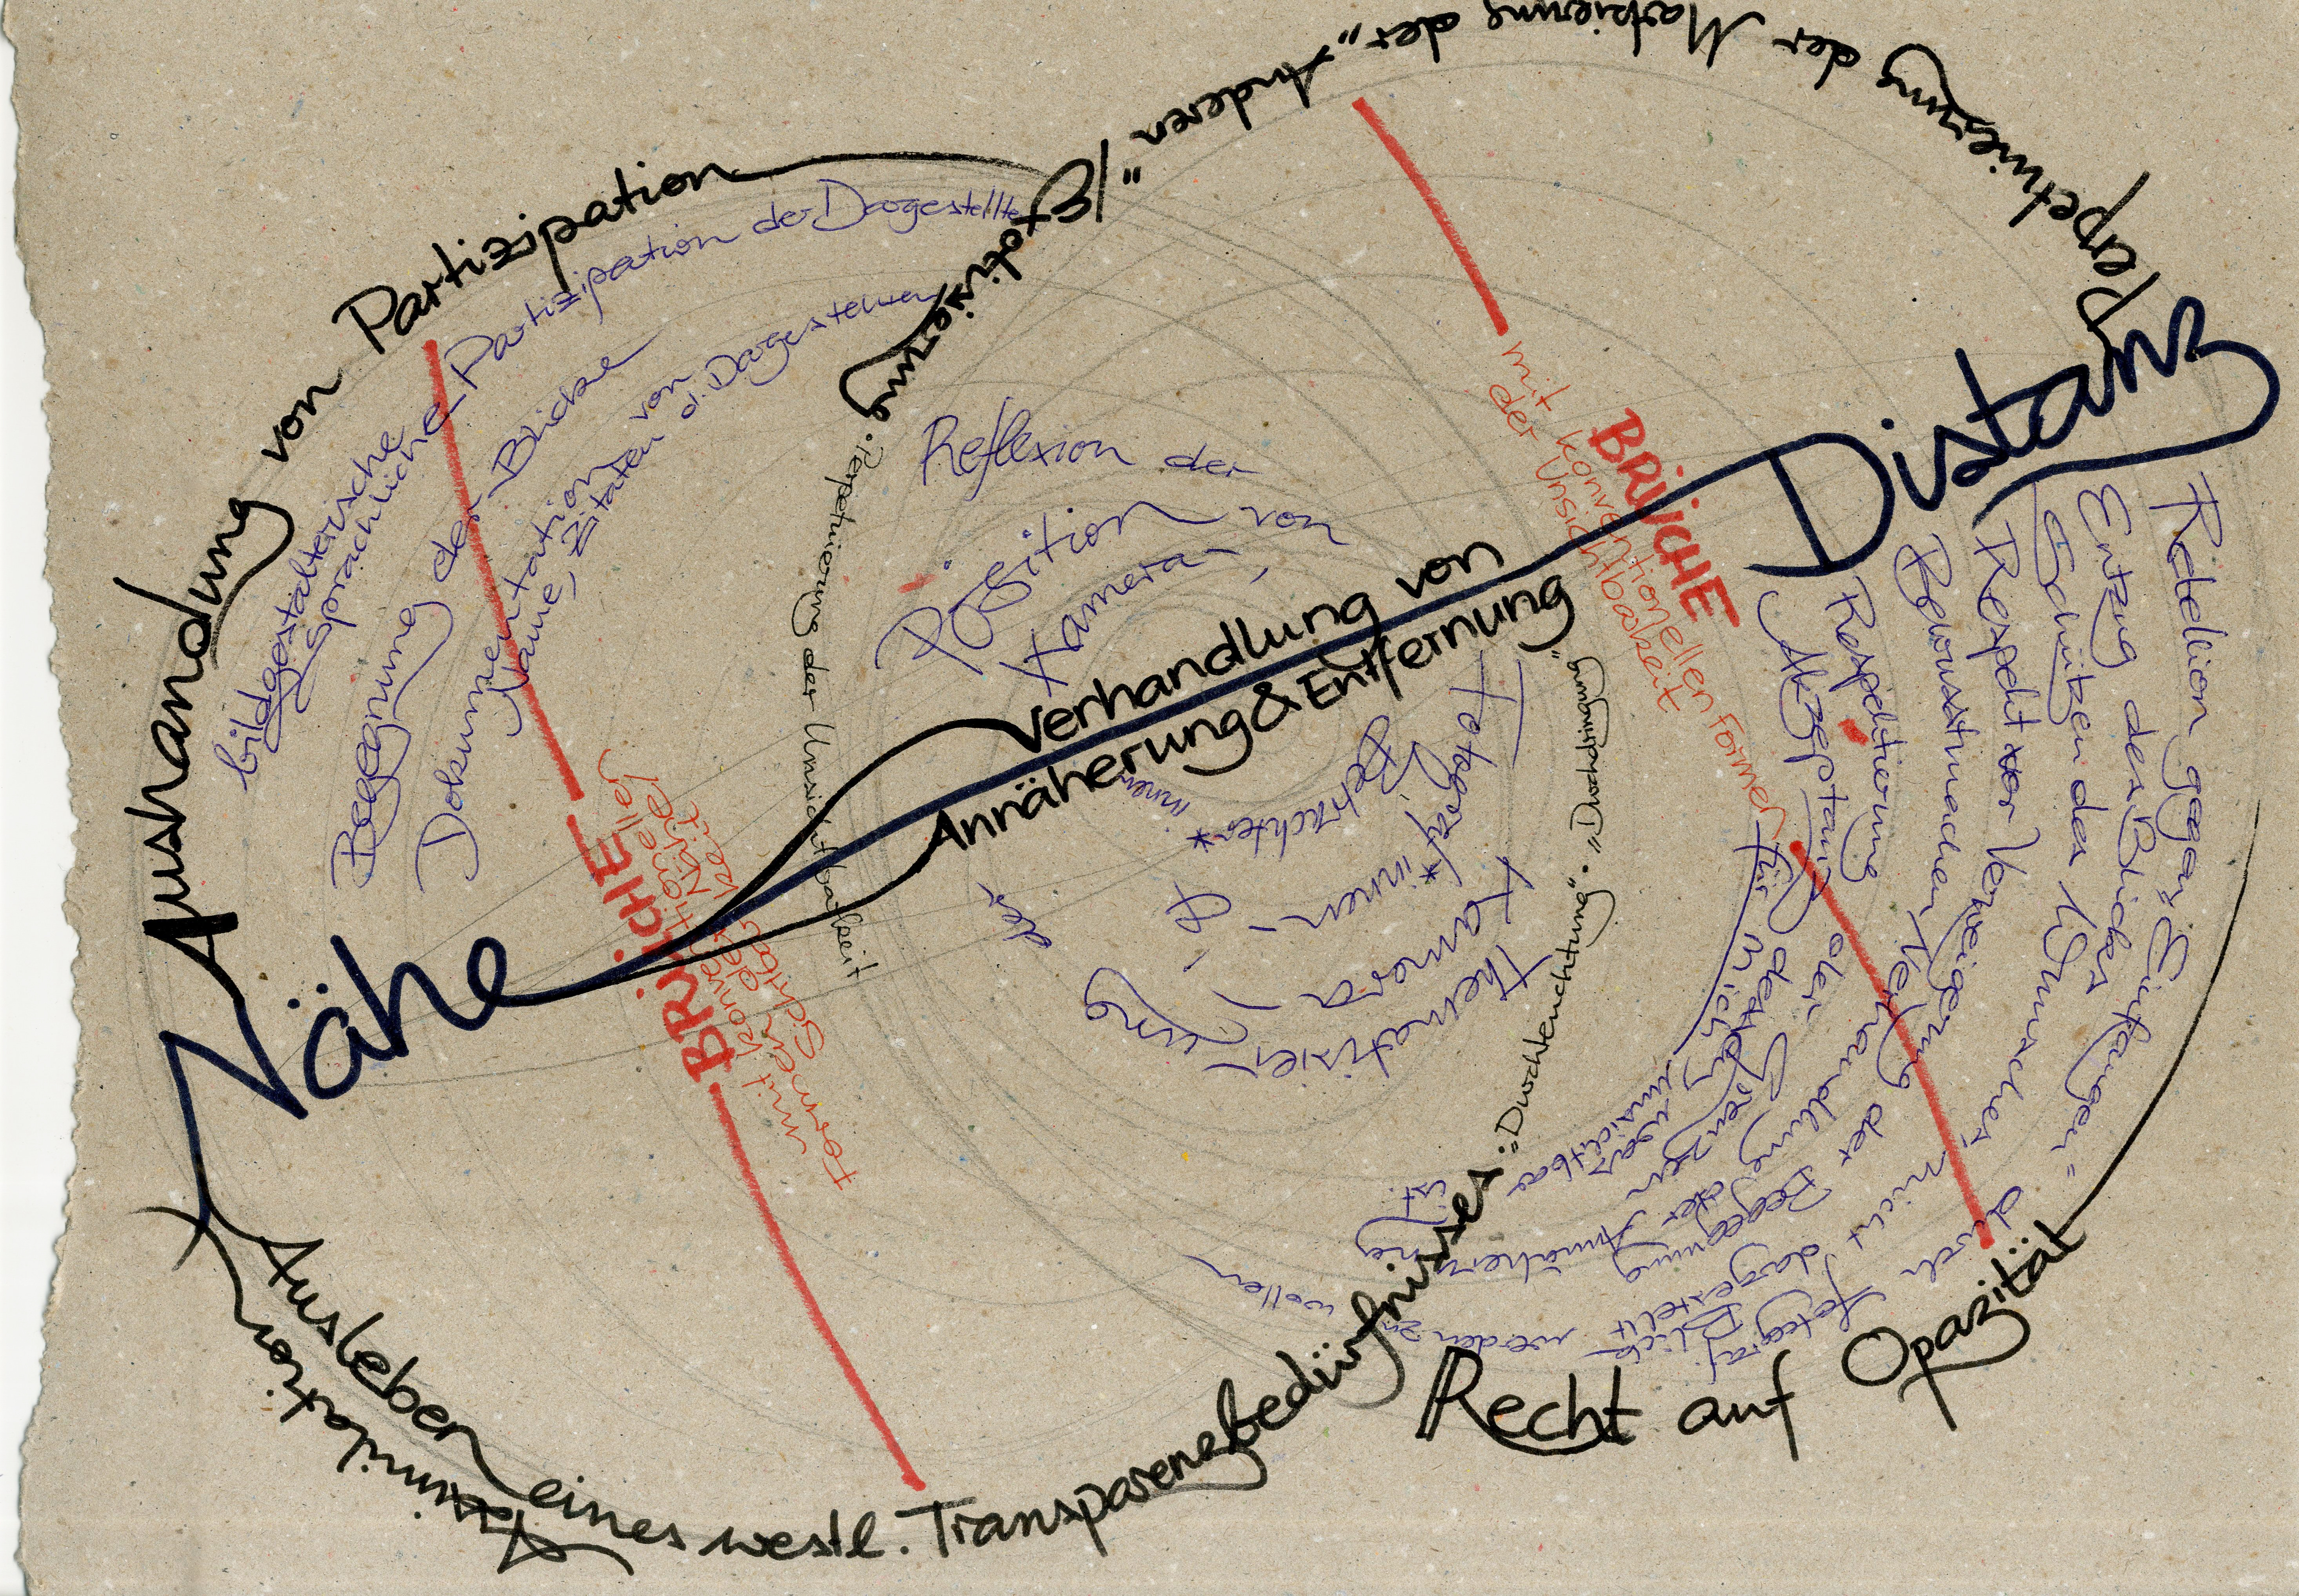 Perpetuierung der Markierung der „Anderen“ / Exotisierung
Aushandlung von Partizipation
bildgestalterische
& sprachliche Partizipation der Dargestellten
Begegnung der Blicke
Dokumentation von
Name, Zitaten d. Dargestellten
BRÜCHE
mit konventionellen
Formen der
Sichtbarkeit
· Perpetuierung der Unsichtbarkeit
Reflexion der
Position von
Kamera-,
Fotograf*innen-, &
Betrachter*innen
Thematisierung
der
Kamera,
Verhandlung von
Annäherung & Entfernung
Nähe
Distanz
BRÜCHE
mit konventionellen Formen
der Unsichtbarkeit
Rebellion gegen „Einfangen“ durch fotograf. Blick
Entzug des Blickes
Schützen des Wunsches, nicht dargestellt werden zu wollen
Respekt vor Verweigerung der Begegnung
Bewusstmachen der Verhandlung
Respektierung der Grenzen der Annäherung
Akzeptanz dessen,
was
für mich unsichtbar
ist
Assimilation
Ausleben eines westl. Transparenzbedürfnisses: „Durchleuchtung“ · „Durchdringung“
Recht auf Opazität